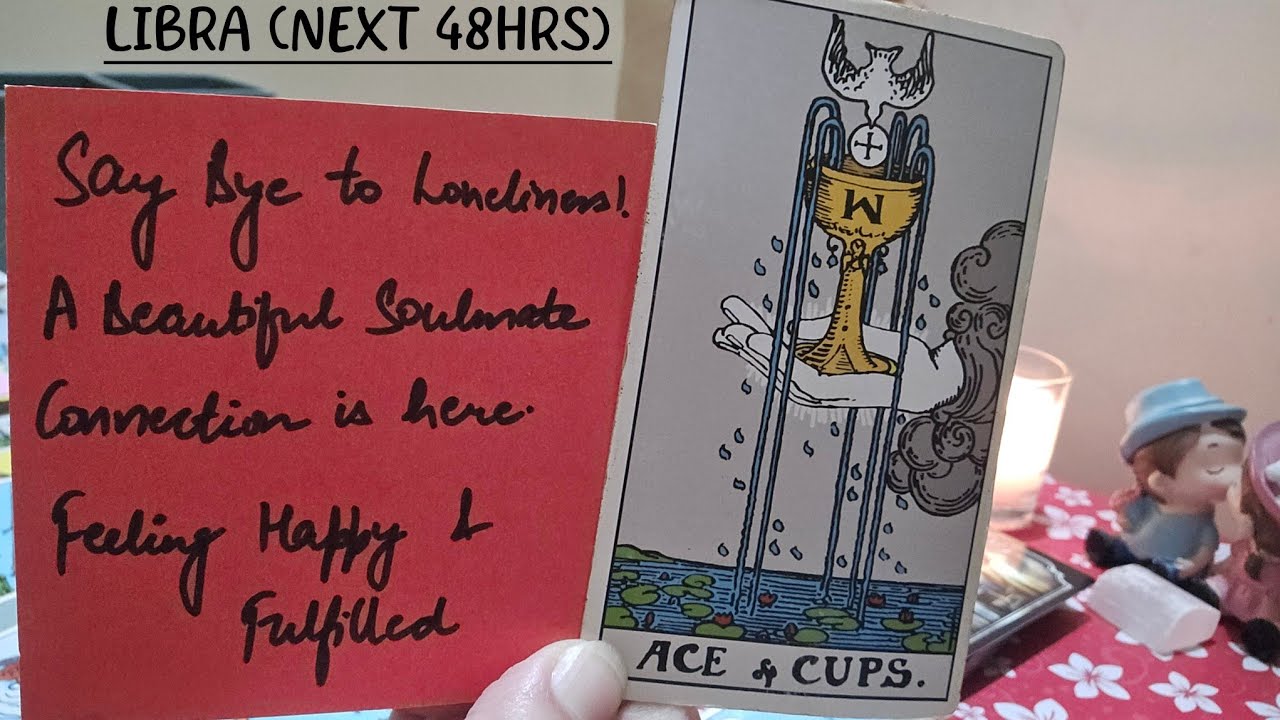 LIBRA (NEXT 48HRS)
Say Bye to Loneliness!
A Beautiful Soulmate
Connection is here.
Feeling Happy &
Fulfilled
M
ACE of CUPS.